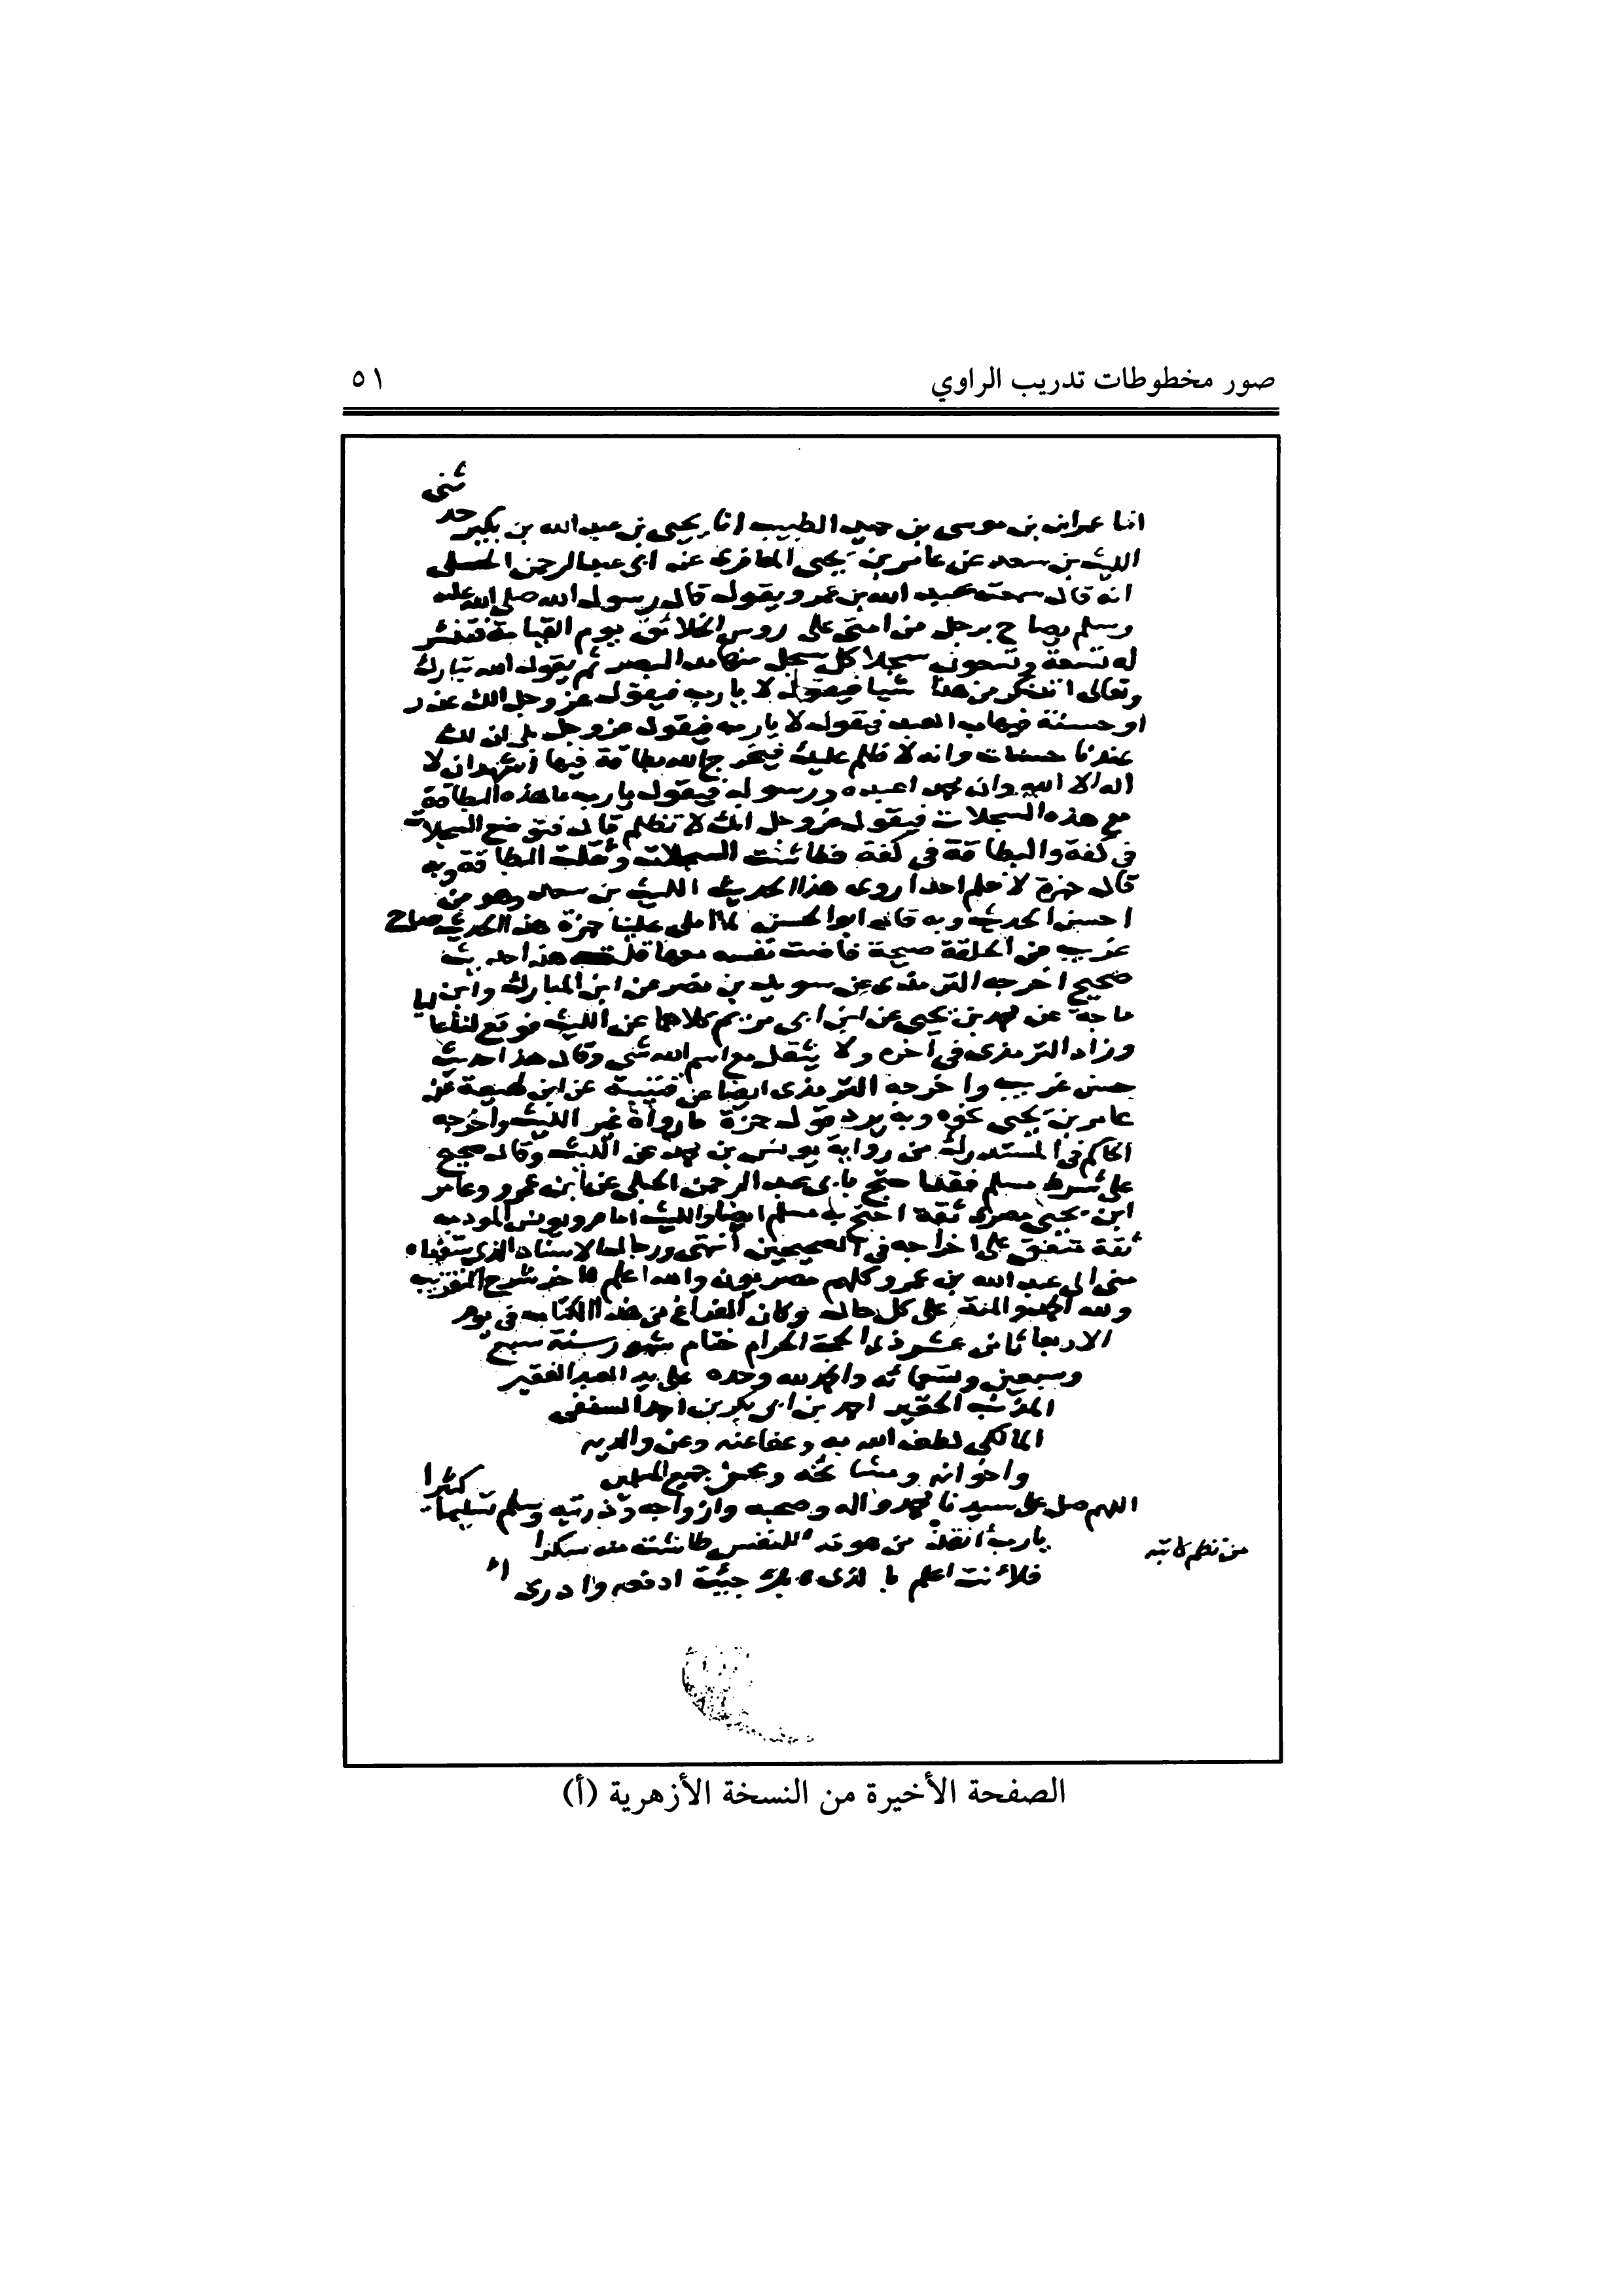 صور مخطوطات تدريب الراوي ٥١
انا عمران بن موسى بن حميد الطبيب انا يحيى بن عبدالله بن بكير حدثنى
الليث بن سعد عن عامر بن يحيى المعافرى عن ابى عبدالرحمن
انه قال سمعت عبد الله بن عمرو يقول قال رسول الله صلى الله عليه
وسلم يصاح برجل من امتى على روس الخلائق يوم القيامة فتنشر
له تسعة وتسعون سجلا كل سجل منها مد البصر ثم يقول الله تبارك
وتعالى اتنكر من هذا شيا فيقول لا يا رب فيقول عز وجل الك عذر
او حسنة فيهاب العبد فيقول لا يارب فيقول عز وجل بلى ان لك
عندنا حسنات وانه لا ظلم عليك فيخرج الله بطاقة فيها اشهد ان لا
اله الا الله وان محمدا عبده ورسوله فيقول يا رب ما هذه البطاقة
مع هذه السجلات فيقول عز وجل انك لا تظلم قال فتوضع السجلات
فى كفة والبطاقة فى كفة فطاشت السجلات وثقلت البطاقة وبه
قال حمزة لا نعلم احدا روى هذا الحديث الليث بن سعد وهو من
احسن الحديث وبه قال ابو الحسن لما املى علينا حمزة هذا الحديث صاح
غريب من الحلقة صيحة فاضت نفسه معها قلت هذا حديث
صحيح اخرجه الترمذى عن سويد بن نصر عن ابن المبارك وابن
ماجة عن محمد بن يحيى عن ابن ابى مريم كلاهما عن الليث فوقع لنا عاليا
وزاد الترمذى فى آخره ولا يثقل مع اسم الله شى وقال هذا حديث
حسن غريب واخرجه الترمذى ايضا عن قتيبة عن ابن لهيعة عن
عامر بن يحيى نحوه وبه يرد قول حمزة ما رواه غير الليث واخرجه
الحاكم فى المستدرك من رواية يونس بن محمد عن الليث وقال صحيح
على شرط مسلم فقد احتج بابى عبد الرحمن الحبلى عن ابن عمرو وعامر
ابن يحيى مصرى ثقة احتج به مسلم ايضا والليث امام ويونس المودب
ثقة متفق على اخراجه فى الصحيحين انتهى ورجال هذا الاسناد الذى سقناه
منى الى عبد الله بن عمرو كلهم مصريون والله اعلم اخر شرح التقريب
ولله الحمد والمنة على كل حال وكان الفراغ من هذا الكتاب فى يوم
الاربعا ثامن عشر ذى الحجة الحرام ختام شهور سنة سبع
وسبعين وتسعمائه والحمد لله وحده على يد العبد الفقير
المذنب الحقير احمد بن ابى بكر بن احمد
المالكى لطف الله به وعفا عنه وعن والديه
واخوانه ومشائخه وعن جميع المسلمين
اللهم صل على سيدنا محمد واله وصحبه وازواجه وذريته وسلم تسليما كثيرا
يا رب انقذ من هو قد للنفس طائشة
فلانت اعلم جئية ادفعه وا درى
الصفحة الأخيرة من النسخة الأزهرية (أ)